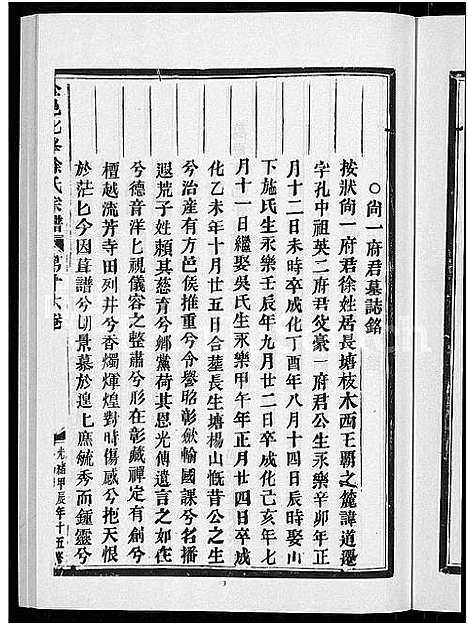 ○尙一府君墓誌銘
按狀尙一府君徐姓居長塘枝木西王覇之麓諱道遷
字孔中祖英二府君父豪一府君公生永樂辛卯年正
月十二日未時卒成化丁酉年八月十四日辰時娶山
下施氏生永樂壬辰年九月廿二日卒成化己亥年七
月十一日繼娶吳氏生永樂甲午年正月廿四日卒成
化乙未年十月廿五日合塟長生塘楊山慨昔公之生
兮治產有方邑侯推重兮令譽昭彰歛輸國課兮名播
遐荒子姓賴其慈育兮鄉黨荷其恩光傳遺言之如在
兮德音洋匕視儀容之整肅兮形在彰藏禪定有創兮
檀越流芳寺田列井兮香燭煇煌對時傷感兮抱天恨
於茫匕今因葺譜兮切景慕於遑匕庶毓秀而鍾靈兮
徐氏宗譜 第十六卷 光緒甲辰年十五修